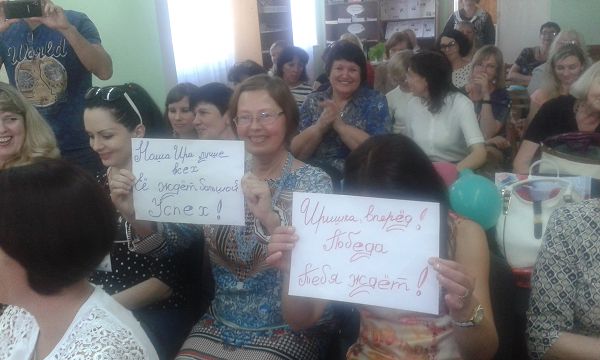 World
Наша Ира лучше
всех
Её ждёт большой
Успех!
Иришка вперёд!
Победа
Тебя ждёт!